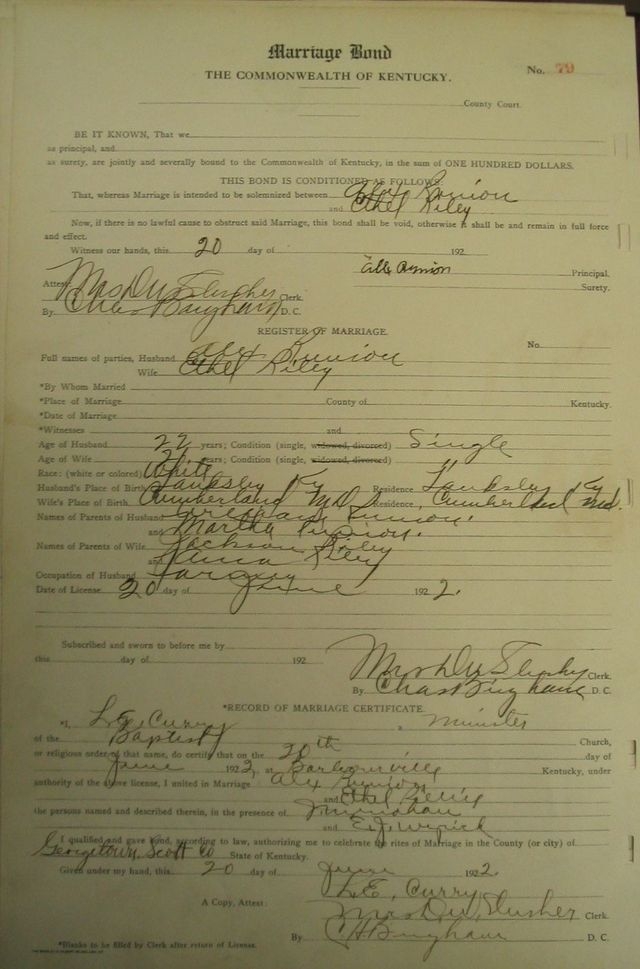 Marriage Bond
No. 79
THE COMMONWEALTH OF KENTUCKY.
County Court.
BE IT KNOWN, That we
as principal, and
as surety, are jointly and severally bound to the Commonwealth of Kentucky, in the sum of ONE HUNDRED DOLLARS.
THIS BOND IS CONDITIONED AS FOLLOWS:
That, whereas Marriage is intended to be solemnized between Alex Runion
and Ethel Riley
Now, if there is no lawful cause to obstruct said Marriage, this bond shall be void, otherwise it shall be and remain in full force
and effect.
Witness our hands, this 20 day of 192
Alex Runion Principal.
Surety.
Attest Clerk.
By Chas Bingham D. C.
REGISTER OF MARRIAGE.
No.
Full names of parties, Husband Alex Runion
Wife Ethel Riley
*By Whom Married
*Place of Marriage County of Kentucky.
*Date of Marriage
*Witnesses and
Age of Husband 22 years; Condition (single, widowed, divorced) Single
Age of Wife 21 years; Condition (single, widowed, divorced) "
Race: (white or colored) White
Husband's Place of Birth Ky Residence Ky
Wife's Place of Birth Cumberland Md Residence, Cumberland Md.
Names of Parents of Husband Runion
and Martha Runion.
Names of Parents of Wife Jackson Riley
and Riley
Occupation of Husband
Date of License 20 day of June 192 2.
Subscribed and sworn to before me by
this day of 192
Clerk.
By Chas Bingham D. C.
*RECORD OF MARRIAGE CERTIFICATE.
*I, L. E. Curry a minister
of the Baptist Church,
or religious order of that name, do certify that on the 20th day of
June 192 2, at Barbourville Kentucky, under
authority of the above license, I united in Marriage Alex Runion
and Ethel
the persons named and described therein, in the presence of
and
I qualified and gave bond, according to law, authorizing me to celebrate the rites of Marriage in the County (or city) of
Georgetown, Scott Co State of Kentucky.
Given under my hand, this 20 day of June 192 2.
L. E. Curry
A Copy, Attest: Slusher Clerk.
By C H Bingham D. C.
*Blanks to be filled by Clerk after return of License.